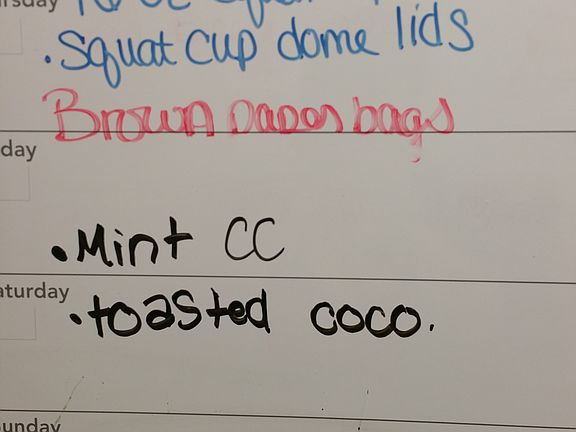 • Squat cup dome lids
Brown paper bags
day
• Mint CC
aturday
• toasted coco.
unday